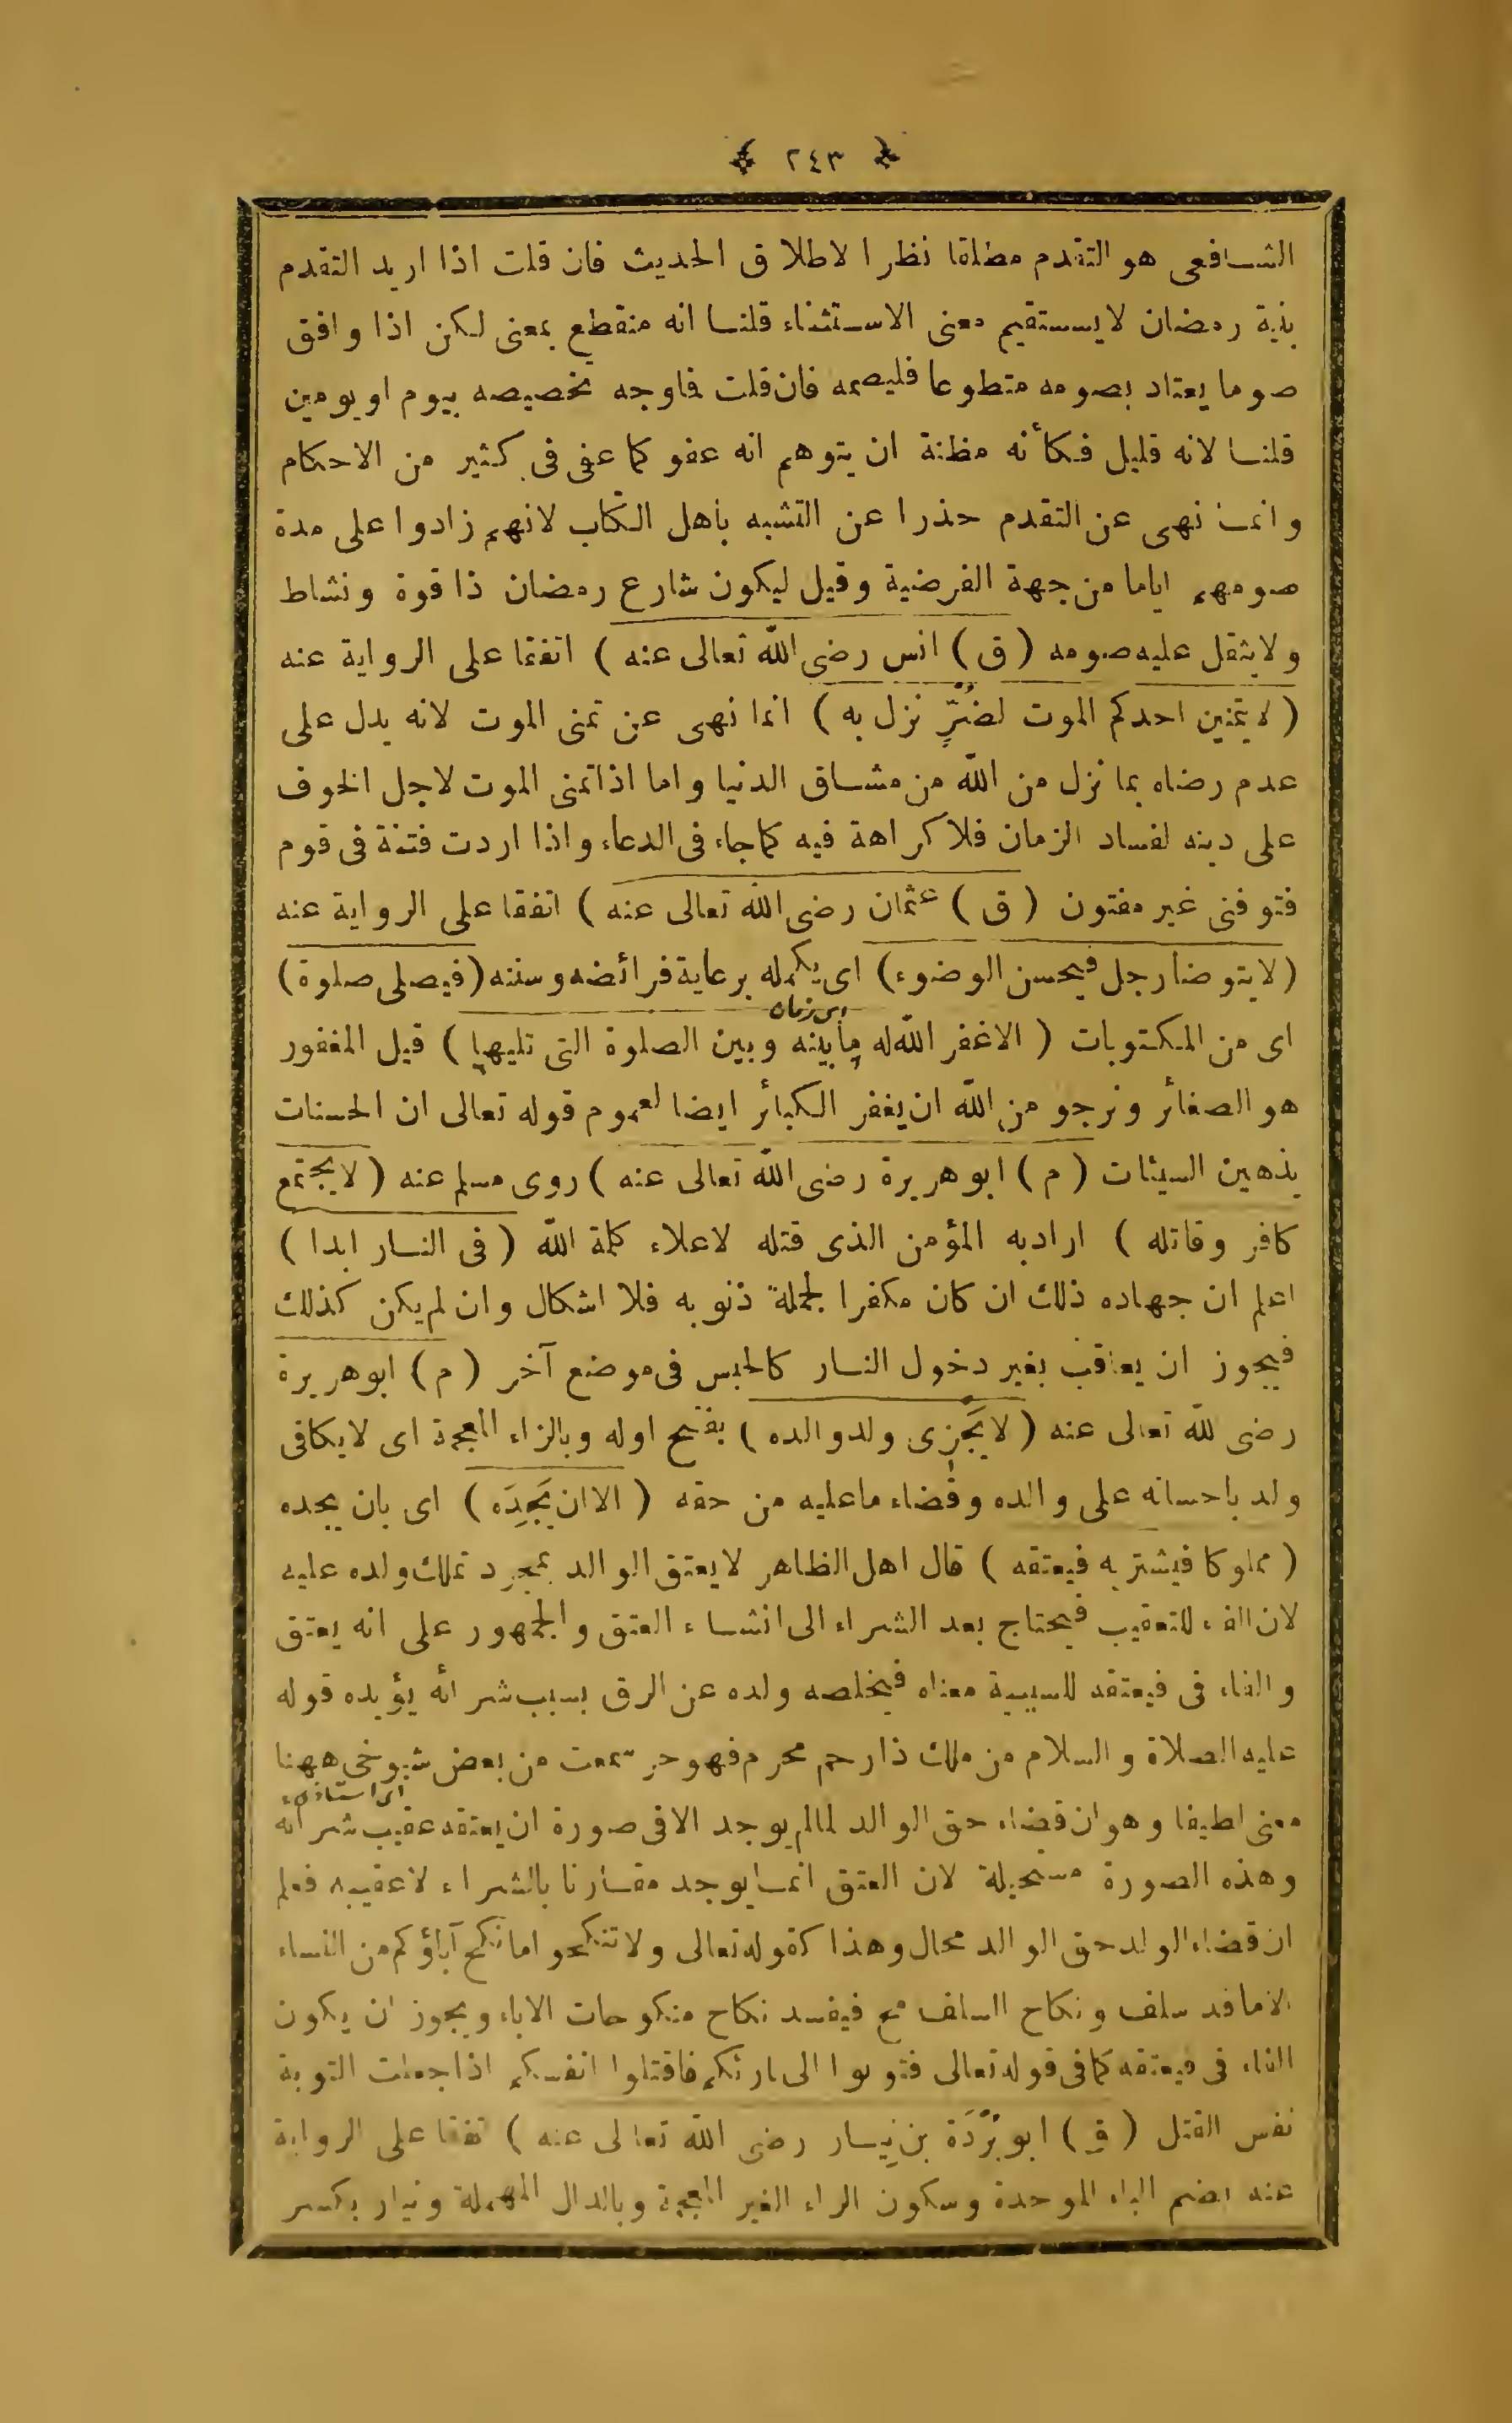 ﴿ ٢٤٣ ﴾
الشافعى هو التقدم مطلقا نظرا لاطلاق الحديث فان قلت اذا اريد التقدم
بنية رمضان لا يستقيم معنى الاستثناء قلنا انه منقطع بمعنى لكن اذا وافق
صوما يعتاد بصومه متطوعا فليصمه فان قلت فاوجه تخصيصه بيوم او يومين
قلنا لانه قليل فكأنه مظنة ان يتوهم انه عفو كما عفى فى كثير من الاحكام
وانما نهى عن التقدم حذرا عن التشبه باهل الكتاب لانهم زادوا على مدة
صومهم اياما من جهة الفرضية وقيل ليكون شارع رمضان ذا قوة ونشاط
ولا يثقل عليه صومه ( ق ) انس رضى الله تعالى عنه ) اتفقا على الرواية عنه
( لا يتمنين احدكم الموت لضُرٍّ نزل به ) انما نهى عن تمنى الموت لانه يدل على
عدم رضاه بما نزل من الله من مشاق الدنيا واما اذا تمنى الموت لاجل الخوف
على دينه لفساد الزمان فلا كراهة فيه كما جاء فى الدعاء واذا اردت فتنة فى قوم
فتوفنى غير مفتون ( ق ) عثمان رضى الله تعالى عنه ) اتفقا على الرواية عنه
( لا يتوضأ رجل فيحسن الوضوء ) اى يكمله برعاية فرائضه وسننه ( فيصلى صلوة )
اى من المكتوبات ( الا غفر الله له ما بينه وبين الصلوة التى تليها ) قيل المغفور
هو الصغائر ونرجو من الله ان يغفر الكبائر ايضا لعموم قوله تعالى ان الحسنات
يذهبن السيئات ( م ) ابو هريرة رضى الله تعالى عنه ) روى مسلم عنه ( لا يجتمع
كافر وقاتله ) اراد به المؤمن الذى قتله لاعلاء كلمة الله ( فى النار ابدا )
اعلم ان جهاده ذلك ان كان مكفرا لجملة ذنوبه فلا اشكال وان لم يكن كذلك
فيجوز ان يعاقب بغير دخول النار كالحبس فى موضع آخر ( م ) ابو هريرة
رضى لله تعالى عنه ( لا يَجزِى ولد والده ) بفتح اوله وبالزاء المعجمة اى لا يكافى
ولد باحسانه على والده وقضاء ما عليه من حقه ( الا ان يَجِدَه ) اى بان يجده
( مملوكا فيشتريه فيعتقه ) قال اهل الظاهر لا يعتق الوالد بمجرد تملك ولده عليه
لان الفاء للتعقيب فيحتاج بعد الشراء الى انشاء العتق والجمهور على انه يعتق
والفاء فى فيعتقه للسببية معناه فيخلصه ولده عن الرق بسبب شرائه يؤيده قوله
عليه الصلاة والسلام من ملك ذا رحم محرم فهو حر سمعت من بعض شيوخى ههنا
معنى لطيفا وهو ان قضاء حق الوالد لما لم يوجد الا فى صورة ان يعتقه عقيب شرائه
وهذه الصورة مستحيلة لان العتق انما يوجد مقارنا بالشراء لا عقيبه فعلم
ان قضاء الولد حق الوالد محال وهذا كقوله تعالى ولا تنكحوا ما نكح آباؤكم من النساء
الا ما قد سلف ونكاح السلف مح فيفسد نكاح منكوحات الاباء ويجوز ان يكون
الفاء فى فيعتقه كما فى قوله تعالى فتوبوا الى بارئكم فاقتلوا انفسكم اذا جعلت التوبة
نفس القتل ( ق ) ابو بُرْدَة بن نِيسار رضى الله تعالى عنه ) تفقا على الرواية
عنه بضم الباء الموحدة وسكون الراء الغير المعجمة وبالدال المهملة ونيار بكسر